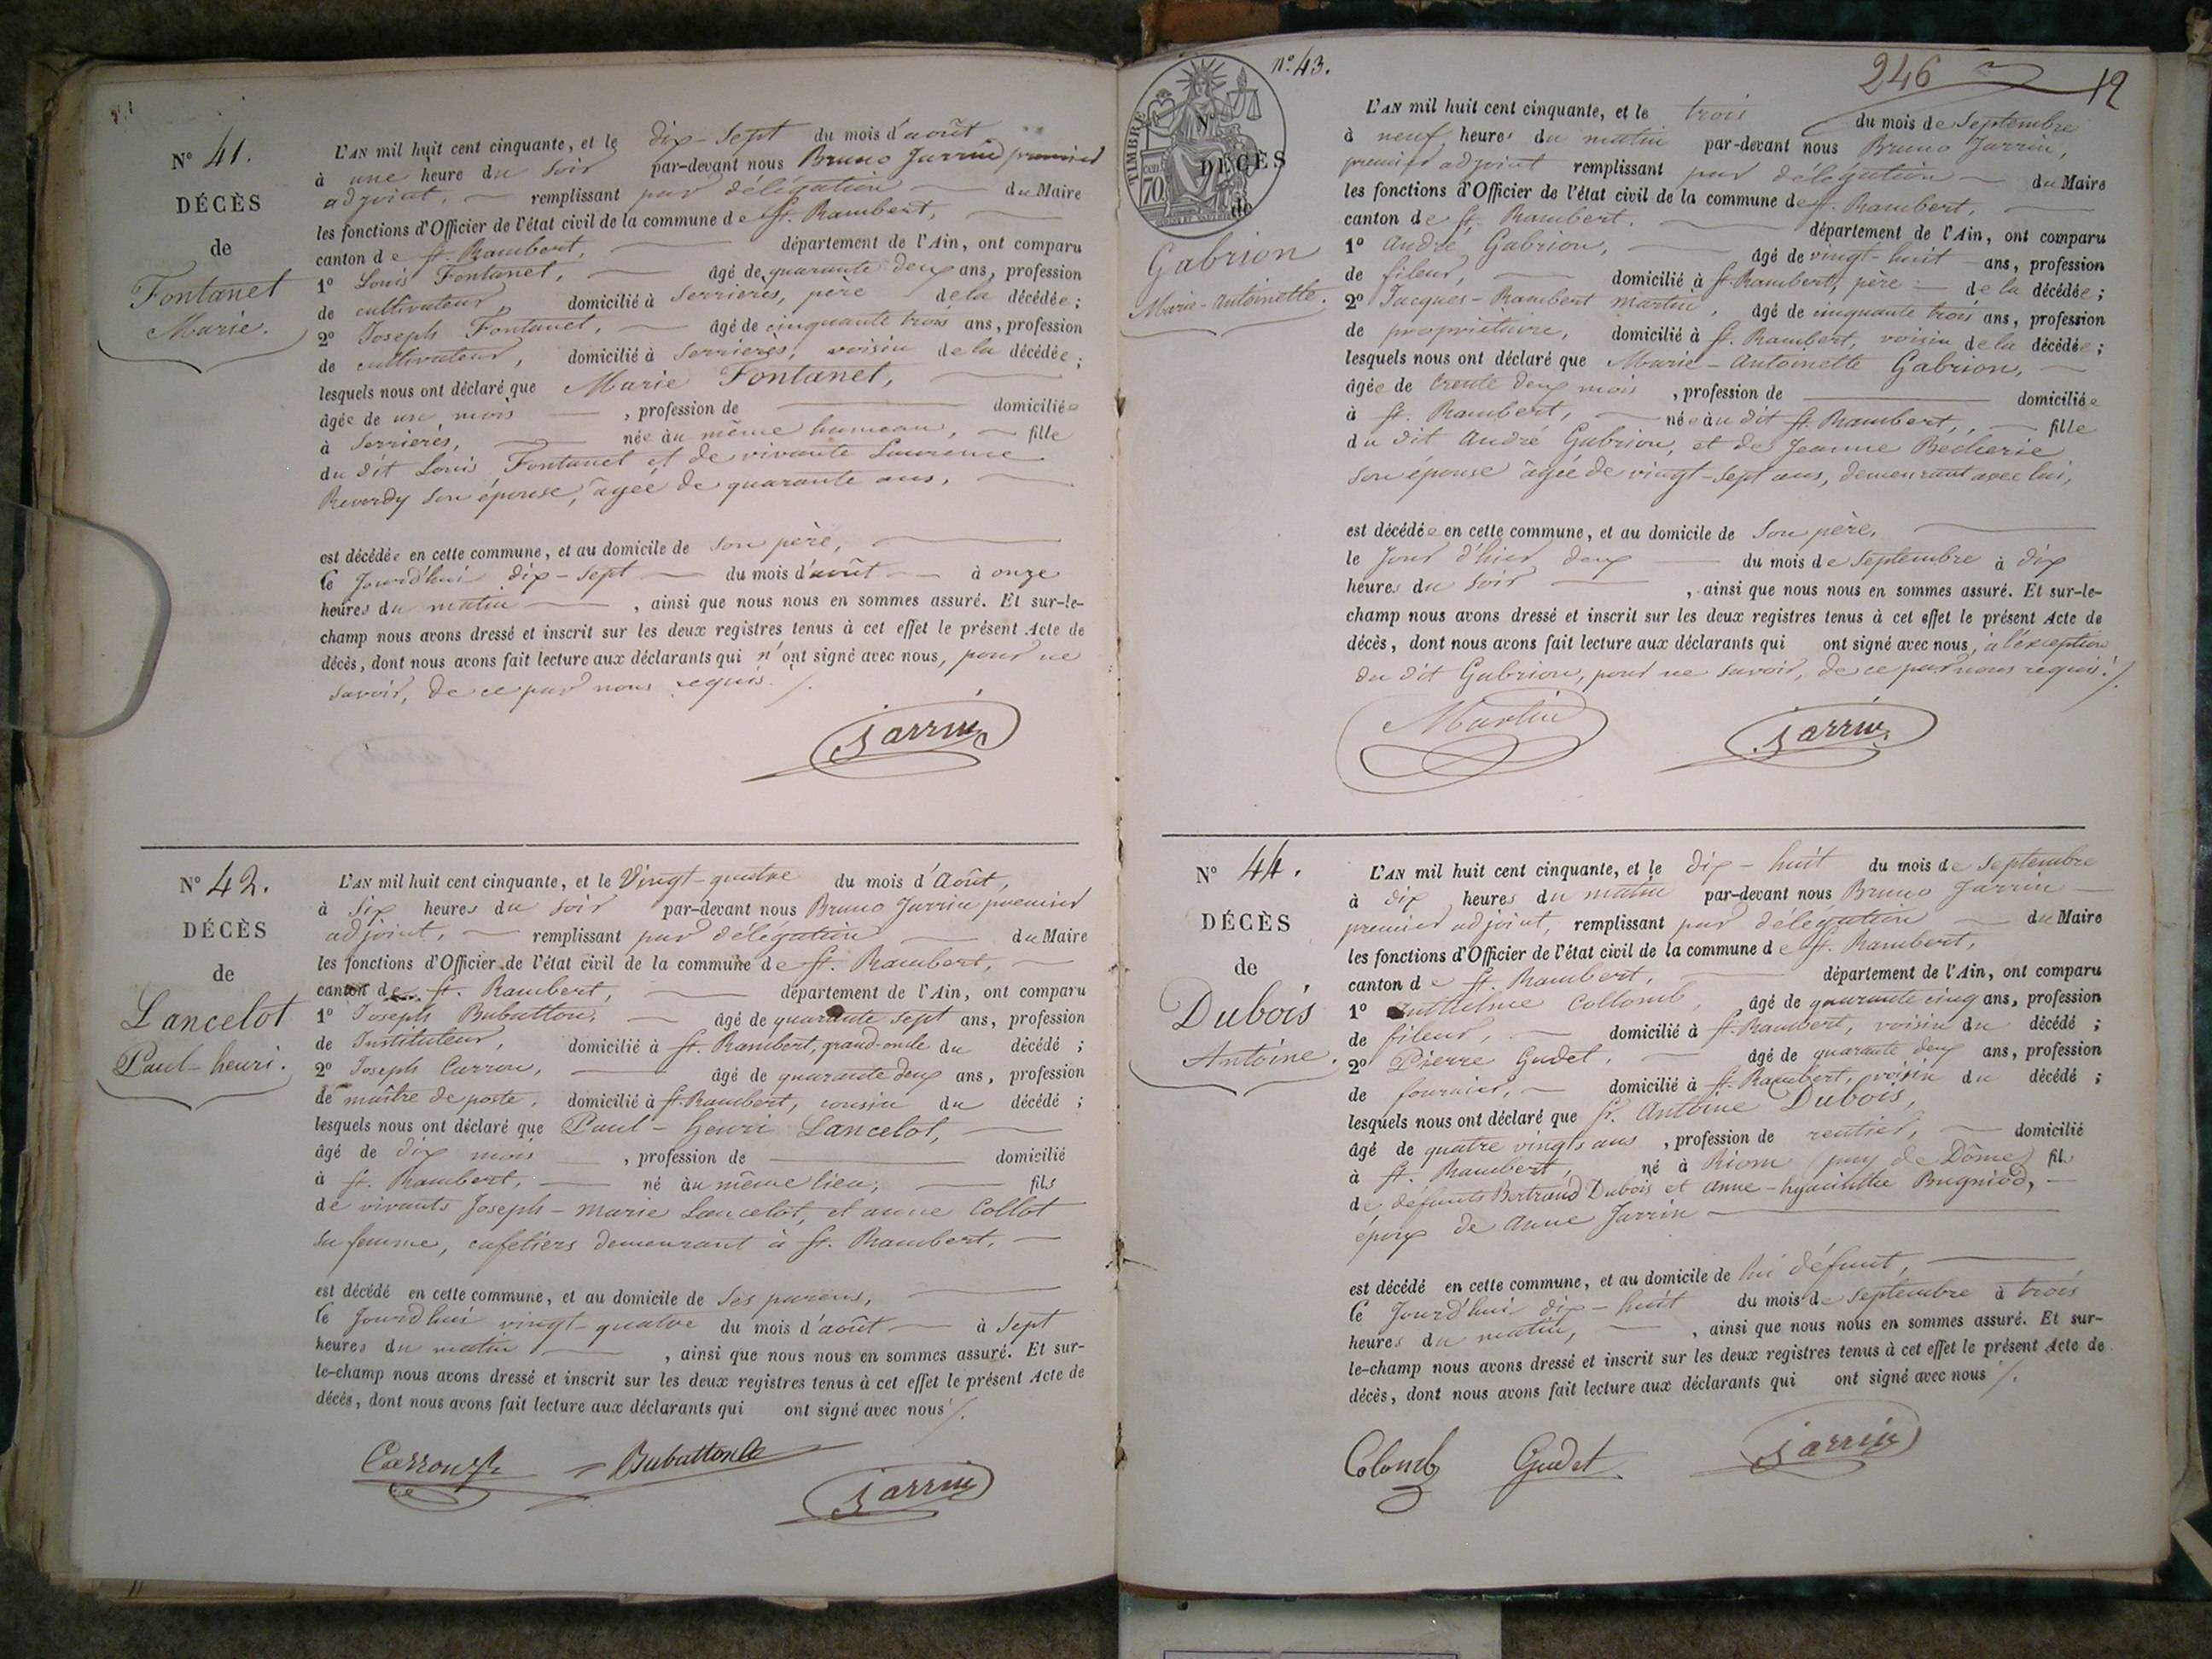 N° 41.
DÉCÈS
de
Fontanet
Marie.
L'AN mil huit cent cinquante, et le dix-sept du mois d'août
à une heure du soir par-devant nous Bruno Jarrin premier
adjoint, remplissant par délégation du Maire
les fonctions d'Officier de l'état civil de la commune de St. Rambert,
canton de St. Rambert, département de l'Ain, ont comparu
1° Louis Fontanet, âgé de quarante deux ans, profession
de cultivateur, domicilié à Serrières, père de la décédée;
2° Joseph Fontanet, âgé de cinquante trois ans, profession
de cultivateur, domicilié à Serrières, voisin de la décédée;
lesquels nous ont déclaré que Marie Fontanet,
âgée de un mois, profession de domiciliée
à Serrières, née au même hameau, fille
du dit Louis Fontanet et de vivante Laurence
Reverdy son épouse, âgée de quarante ans,
est décédée en cette commune, et au domicile de son père,
le jourd'hui dix-sept du mois d'août à onze
heures du matin, ainsi que nous nous en sommes assuré. Et sur-le-
champ nous avons dressé et inscrit sur les deux registres tenus à cet effet le présent Acte de
décès, dont nous avons fait lecture aux déclarants qui n'ont signé avec nous, pour ne
savoir, de ce par nous requis./.
Jarrin
N° 42.
DÉCÈS
de
Lancelot
Paul-henri.
L'AN mil huit cent cinquante, et le Vingt-quatre du mois d'Août,
à six heures du soir par-devant nous Bruno Jarrin premier
adjoint, remplissant par délégation du Maire
les fonctions d'Officier de l'état civil de la commune de St. Rambert,
canton de St. Rambert, département de l'Ain, ont comparu
1° Joseph Bubatton, âgé de quarante sept ans, profession
de Instituteur, domicilié à St. Rambert, grand-oncle du décédé;
2° Joseph Carron, âgé de quarante deux ans, profession
de maître de poste, domicilié à St. Rambert, cousin du décédé;
lesquels nous ont déclaré que Paul-Henri Lancelot,
âgé de dix mois, profession de domicilié
à St. Rambert, né au même lieu, fils
de vivants Joseph-Marie Lancelot, et anne Collot
sa femme, cafetiers demeurant à St. Rambert,
est décédé en cette commune, et au domicile de ses parens,
le jourd'hui vingt-quatre du mois d'août à sept
heures du matin, ainsi que nous nous en sommes assuré. Et sur-
le-champ nous avons dressé et inscrit sur les deux registres tenus à cet effet le présent Acte de
décès, dont nous avons fait lecture aux déclarants qui ont signé avec nous./.
Carron Bubatton
Jarrin
246 12
N° 43.
TIMBRE
70
N°
DÉCÈS
de
Gabrion
Marie-Antoinette.
L'AN mil huit cent cinquante, et le trois du mois de Septembre
à neuf heures du matin par-devant nous Bruno Jarrin,
premier adjoint remplissant par délégation du Maire
les fonctions d'Officier de l'état civil de la commune de St. Rambert,
canton de St. Rambert, département de l'Ain, ont comparu
1° André Gabrion, âgé de vingt-huit ans, profession
de fileur, domicilié à St. Rambert, père de la décédée;
2° Jacques-Rambert Martin, âgé de cinquante trois ans, profession
de propriétaire, domicilié à St. Rambert, voisin de la décédée;
lesquels nous ont déclaré que Marie-Antoinette Gabrion,
âgée de trente deux mois, profession de domiciliée
à St. Rambert, née au dit St. Rambert, fille
du dit André Gabrion, et de Jeanne Becherie
son épouse âgée de vingt-sept ans, demeurant avec lui,
est décédée en cette commune, et au domicile de son père,
le jour d'hier deux du mois de Septembre à dix
heures du soir, ainsi que nous nous en sommes assuré. Et sur-le-
champ nous avons dressé et inscrit sur les deux registres tenus à cet effet le présent Acte de
décès, dont nous avons fait lecture aux déclarants qui ont signé avec nous, à l'exception
du dit Gabrion, pour ne savoir, de ce par nous requis./.
Martin Jarrin
N° 44.
DÉCÈS
de
Dubois
Antoine.
L'AN mil huit cent cinquante, et le dix-huit du mois de Septembre
à dix heures du matin par-devant nous Bruno Jarrin
premier adjoint, remplissant par délégation du Maire
les fonctions d'Officier de l'état civil de la commune de St. Rambert,
canton de St. Rambert, département de l'Ain, ont comparu
1° Anthelme Collomb, âgé de quarante cinq ans, profession
de fileur, domicilié à St. Rambert, voisin du décédé;
2° Pierre Gudet, âgé de quarante deux ans, profession
de fournier, domicilié à St. Rambert, voisin du décédé;
lesquels nous ont déclaré que Sr. Antoine Dubois,
âgé de quatre vingts ans, profession de rentier, domicilié
à St. Rambert, né à Riom (puy de Dôme) fils
de défunts Bertrand Dubois et Anne-hyacinthe Bugniod,
époux de Anne Jarrin
est décédé en cette commune, et au domicile de lui défunt,
le jourd'hui dix-huit du mois de Septembre à trois
heures du matin, ainsi que nous nous en sommes assuré. Et sur-
le-champ nous avons dressé et inscrit sur les deux registres tenus à cet effet le présent Acte de
décès, dont nous avons fait lecture aux déclarants qui ont signé avec nous./.
Colomb Gudet Jarrin